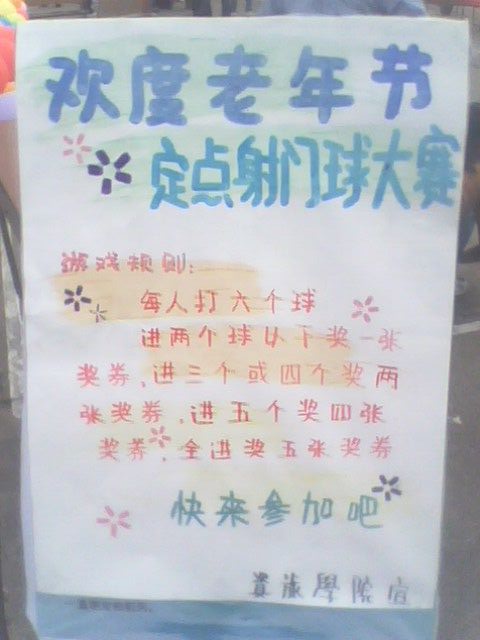 欢度老年节
定点射门球大赛
游戏规则:
每人打六个球
进两个球以下奖一张
奖券,进三个或四个奖两
张奖券,进五个奖四张
奖券,全进奖五张奖券
快来参加吧
资旅學院宣